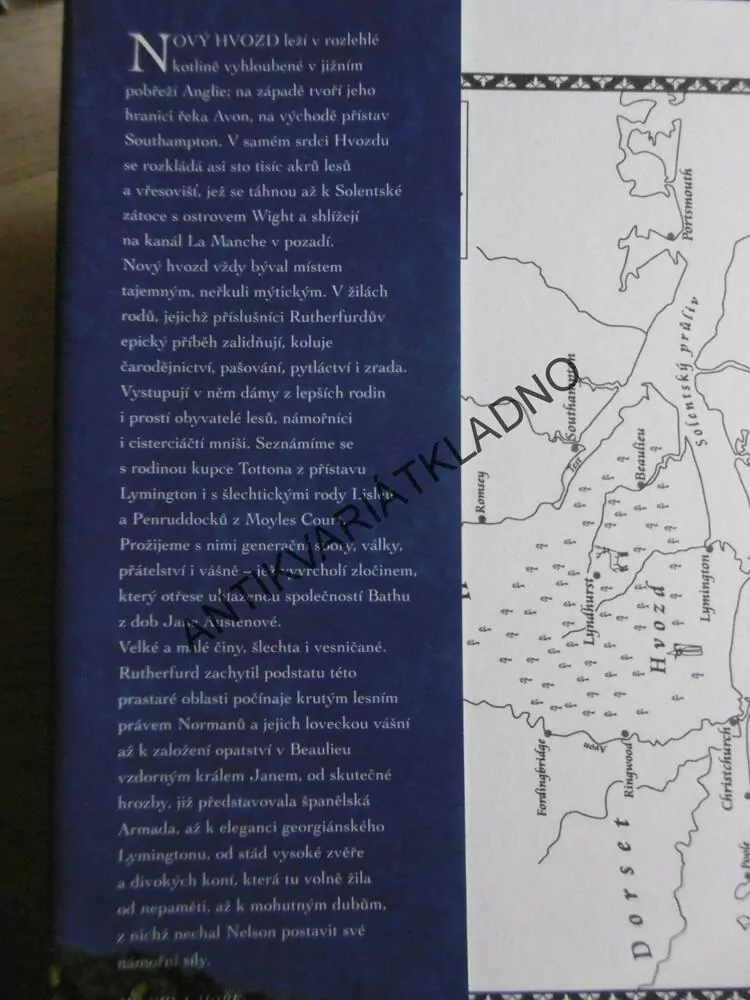 NOVÝ HVOZD leží v rozlehlé
kotlině vyhloubené v jižním
pobřeží Anglie: na západě tvoří jeho
hranici řeka Avon, na východě přístav
Southampton. V samém srdci Hvozdu
se rozkládá asi sto tisíc akrů lesů
a vřesovišť, jež se táhnou až k Solentské
zátoce s ostrovem Wight a shlížejí
na kanál La Manche v pozadí.
Nový hvozd vždy býval místem
tajemným, neřkuli mýtickým. V žilách
rodů, jejichž příslušníci Rutherfurdův
epický příběh zalidňují, koluje
čarodějnictví, pašování, pytláctví i zrada.
Vystupují v něm dámy z lepších rodin
i prostí obyvatelé lesů, námořníci
i cisterciáčtí mniši. Seznámíme se
s rodinou kupce Tottona z přístavu
Lymington i s šlechtickými rody Lisleů
a Penruddocků z Moyles Court.
Prožijeme s nimi generační spory, války,
přátelství i vášně – vyvrcholí zločinem,
který otřese uhlazenou společností Bathu
z dob Jane Austenové.
Velké a malé činy, šlechta i vesničané.
Rutherfurd zachytil podstatu této
prastaré oblasti počínaje krutým lesním
právem Normanů a jejich loveckou vášní
až k založení opatství v Beaulieu
vzdorným králem Janem, od skutečné
hrozby, již představovala španělská
Armada, až k eleganci georgiánského
Lymingtonu, od stád vysoké zvěře
a divokých koní, která tu volně žila
od nepaměti, až k mohutným dubům,
z nichž nechal Nelson postavit své
námořní síly.
ANTIKVARIÁTKLADNO
Portsmouth
Solentský průliv
Southampton
Test
Beaulieu
Romsey
Lyndhurst
Hvozd
Lymington
Fordingbridge
Avon
Ringwood
Christchurch
Dorset
Poole